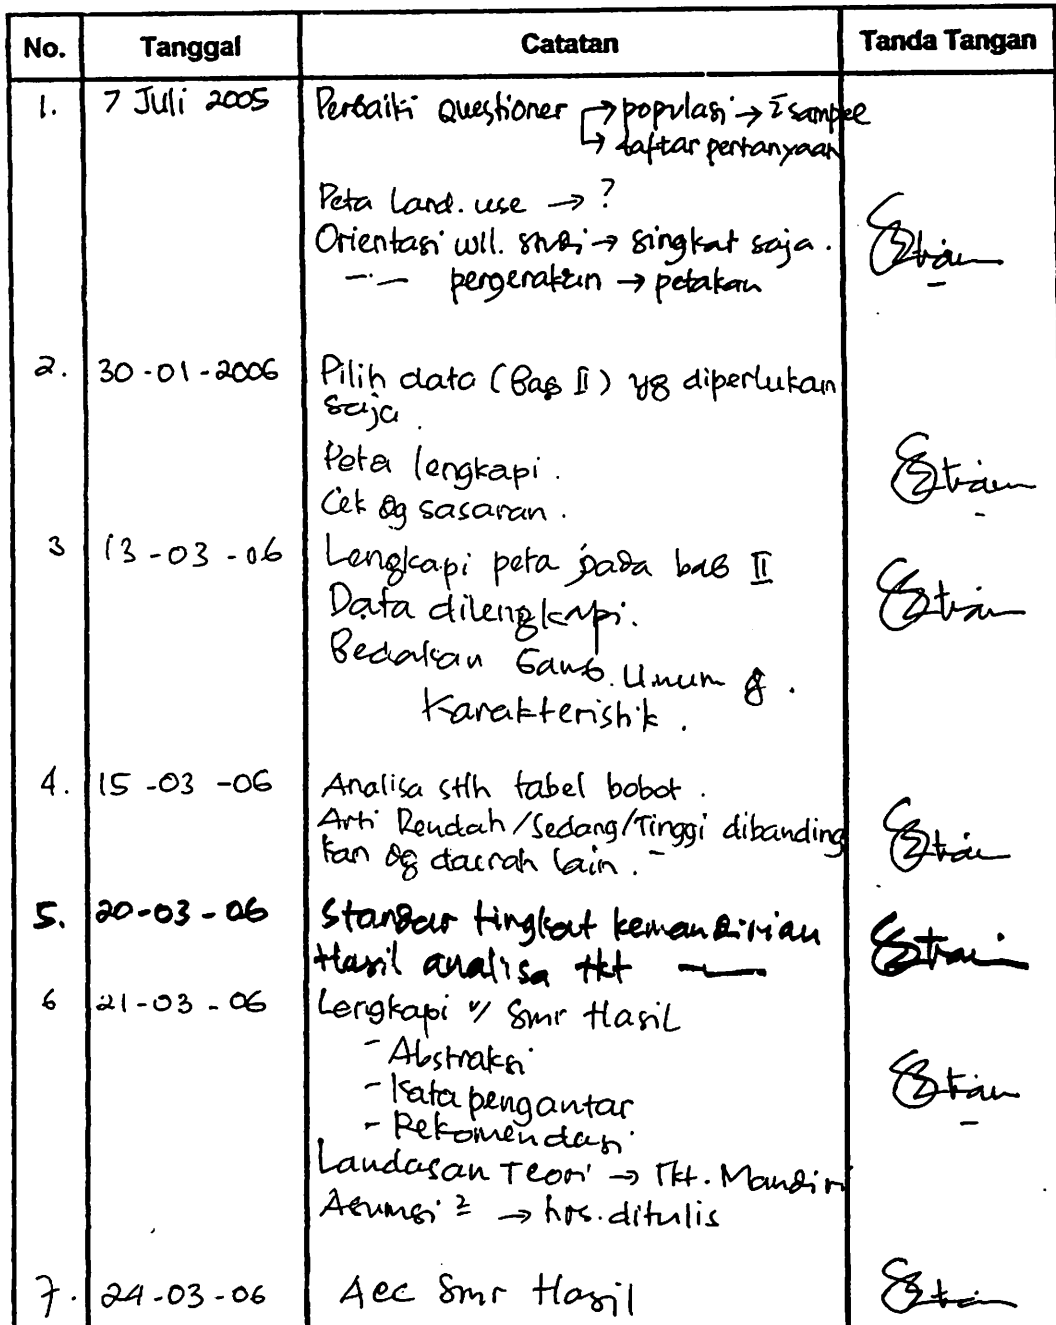 No. Tanggal Catatan Tanda Tangan
1. 7 Juli 2005 Perbaiki Questioner → populasi → Σ sampel
→ daftar pertanyaan
Peta Land. use → ?
Orientasi wil. studi → singkat saja.
—·— pergerakan → petakan
2. 30-01-2006 Pilih data (Bab II) yg diperlukan
saja.
Peta lengkapi.
Cek dg sasaran.
3 13-03-06 Lengkapi peta pada bab II
Data dilengkapi.
Bedakan Gamb. Umum &.
Karakteristik.
4. 15-03-06 Analisa stlh tabel bobot.
Arti Rendah/Sedang/Tinggi dibanding
kan dg daerah lain.
5. 20-03-06 Standar tingkat kemandirian
Hasil analisa tkt —
6 21-03-06 Lengkapi u/ Smr Hasil
- Abstraksi
- Kata pengantar
- Rekomendasi
Landasan Teori → Tkt. Mandiri
Asumsi 2 → hrs. ditulis
7. 24-03-06 Acc Smr Hasil